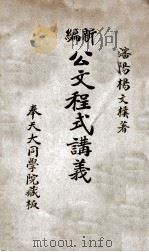 瀋陽楊文樸著
新編
公文程式講義
奉天大同學院藏板